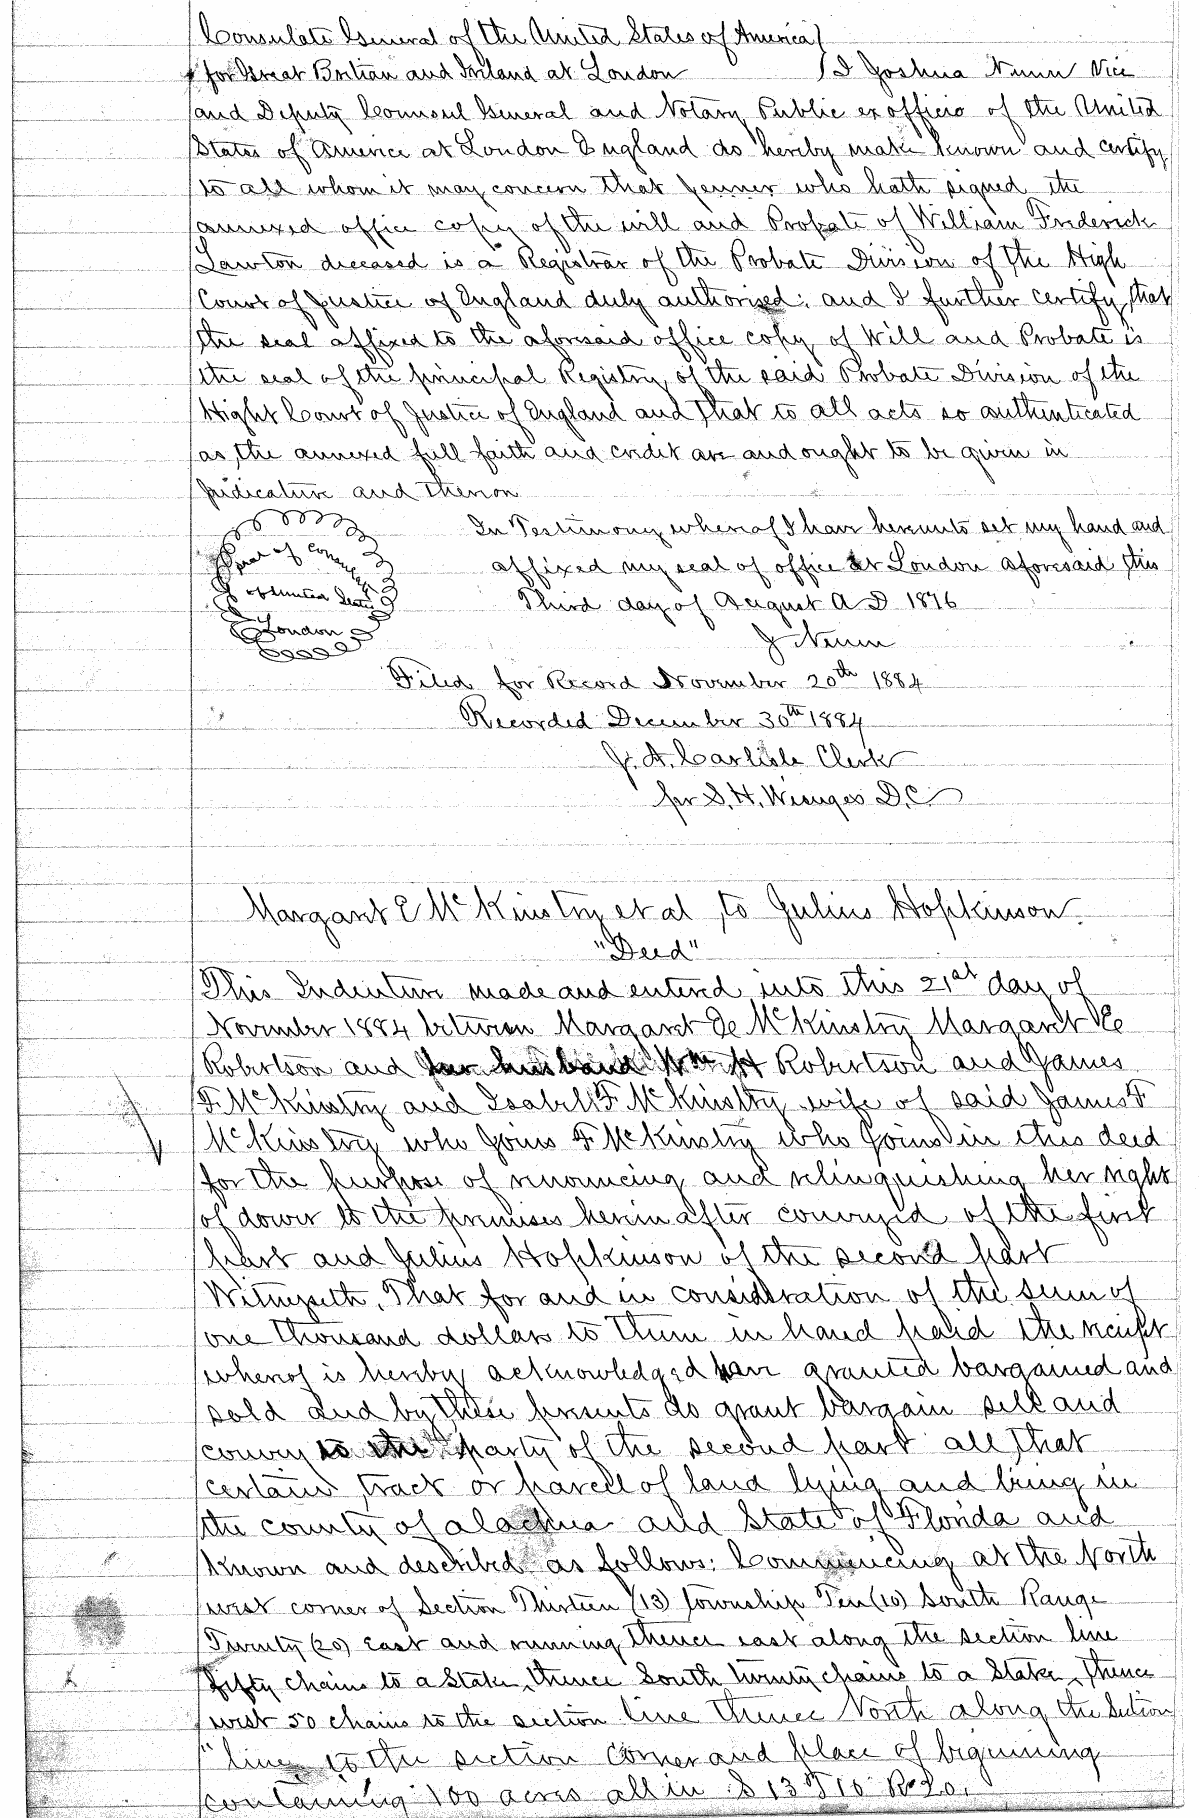 Consulate General of the United States of America)
for Great Britian and Ireland at London ) I Joshua Nunn Vice
and Deputy Counsul General and Notary Public ex officio of the United
States of America at London England do hereby make known and certify
to all whom it may concern that Jenner who hath signed the
annexed office copy of the will and Probate of William Frederick
Lawton deceased is a Registrar of the Probate Division of the High
Court of Justice of England duly authorised: and I further certify that
the seal affixed to the aforesaid office copy of Will and Probate is
the seal of the principal Registry of the said Probate Division of the
Hight Court of Justice of England and that to all acts so authenticated
as the annexed full faith and credit are and ought to be given in
Judicature and thereon
In Testimony whereof I have hereunto set my hand and
Seal of
affixed my seal of office at London aforesaid this
of United States
Third day of August A D 1876
London
J Nunn
Filed for Record November 20th 1884
Recorded December 30th 1884
J. A. Carlisle Clerk
per S. H. Wienges D.C
Margaret E McKinstry et al to Julius Hopkinson
"Deed"
This Indenture made and entered into this 21st day of
November 1884 between Margaret De McKinstry Margaret
Robertson and her husband Wm H Robertson and James
F. McKinstry and Isabell F. McKinstry wife of said James F
McKinstry who joins F McKinstry who joins in this deed
for the purpose of renouncing and relinquishing her right
of dower to the premises herein after conveyed of the first
part and Julius Hopkinson of the second part
Witnesseth, That for and in consideration of the sum of
one thousand dollars to them in hand paid the receipt
whereof is hereby acknowledged have granted bargained and
sold and by these presents do grant bargain sell and
convey to the party of the second part all that
certain tract or parcell of land lying and being in
the county of alachua and State of Florida and
known and described as follows: Commencing at the North
west corner of Section Thirteen (13) township Ten (10) South Range
Twenty (20) east and running thence east along the section line
fifty chains to a Stake, thence South twenty chains to a Stake, thence
west 50 chains to the section line thence North along the Section
" line to the section corner and place of beginning
containing 100 acres all in S 13 T 10 R 20.